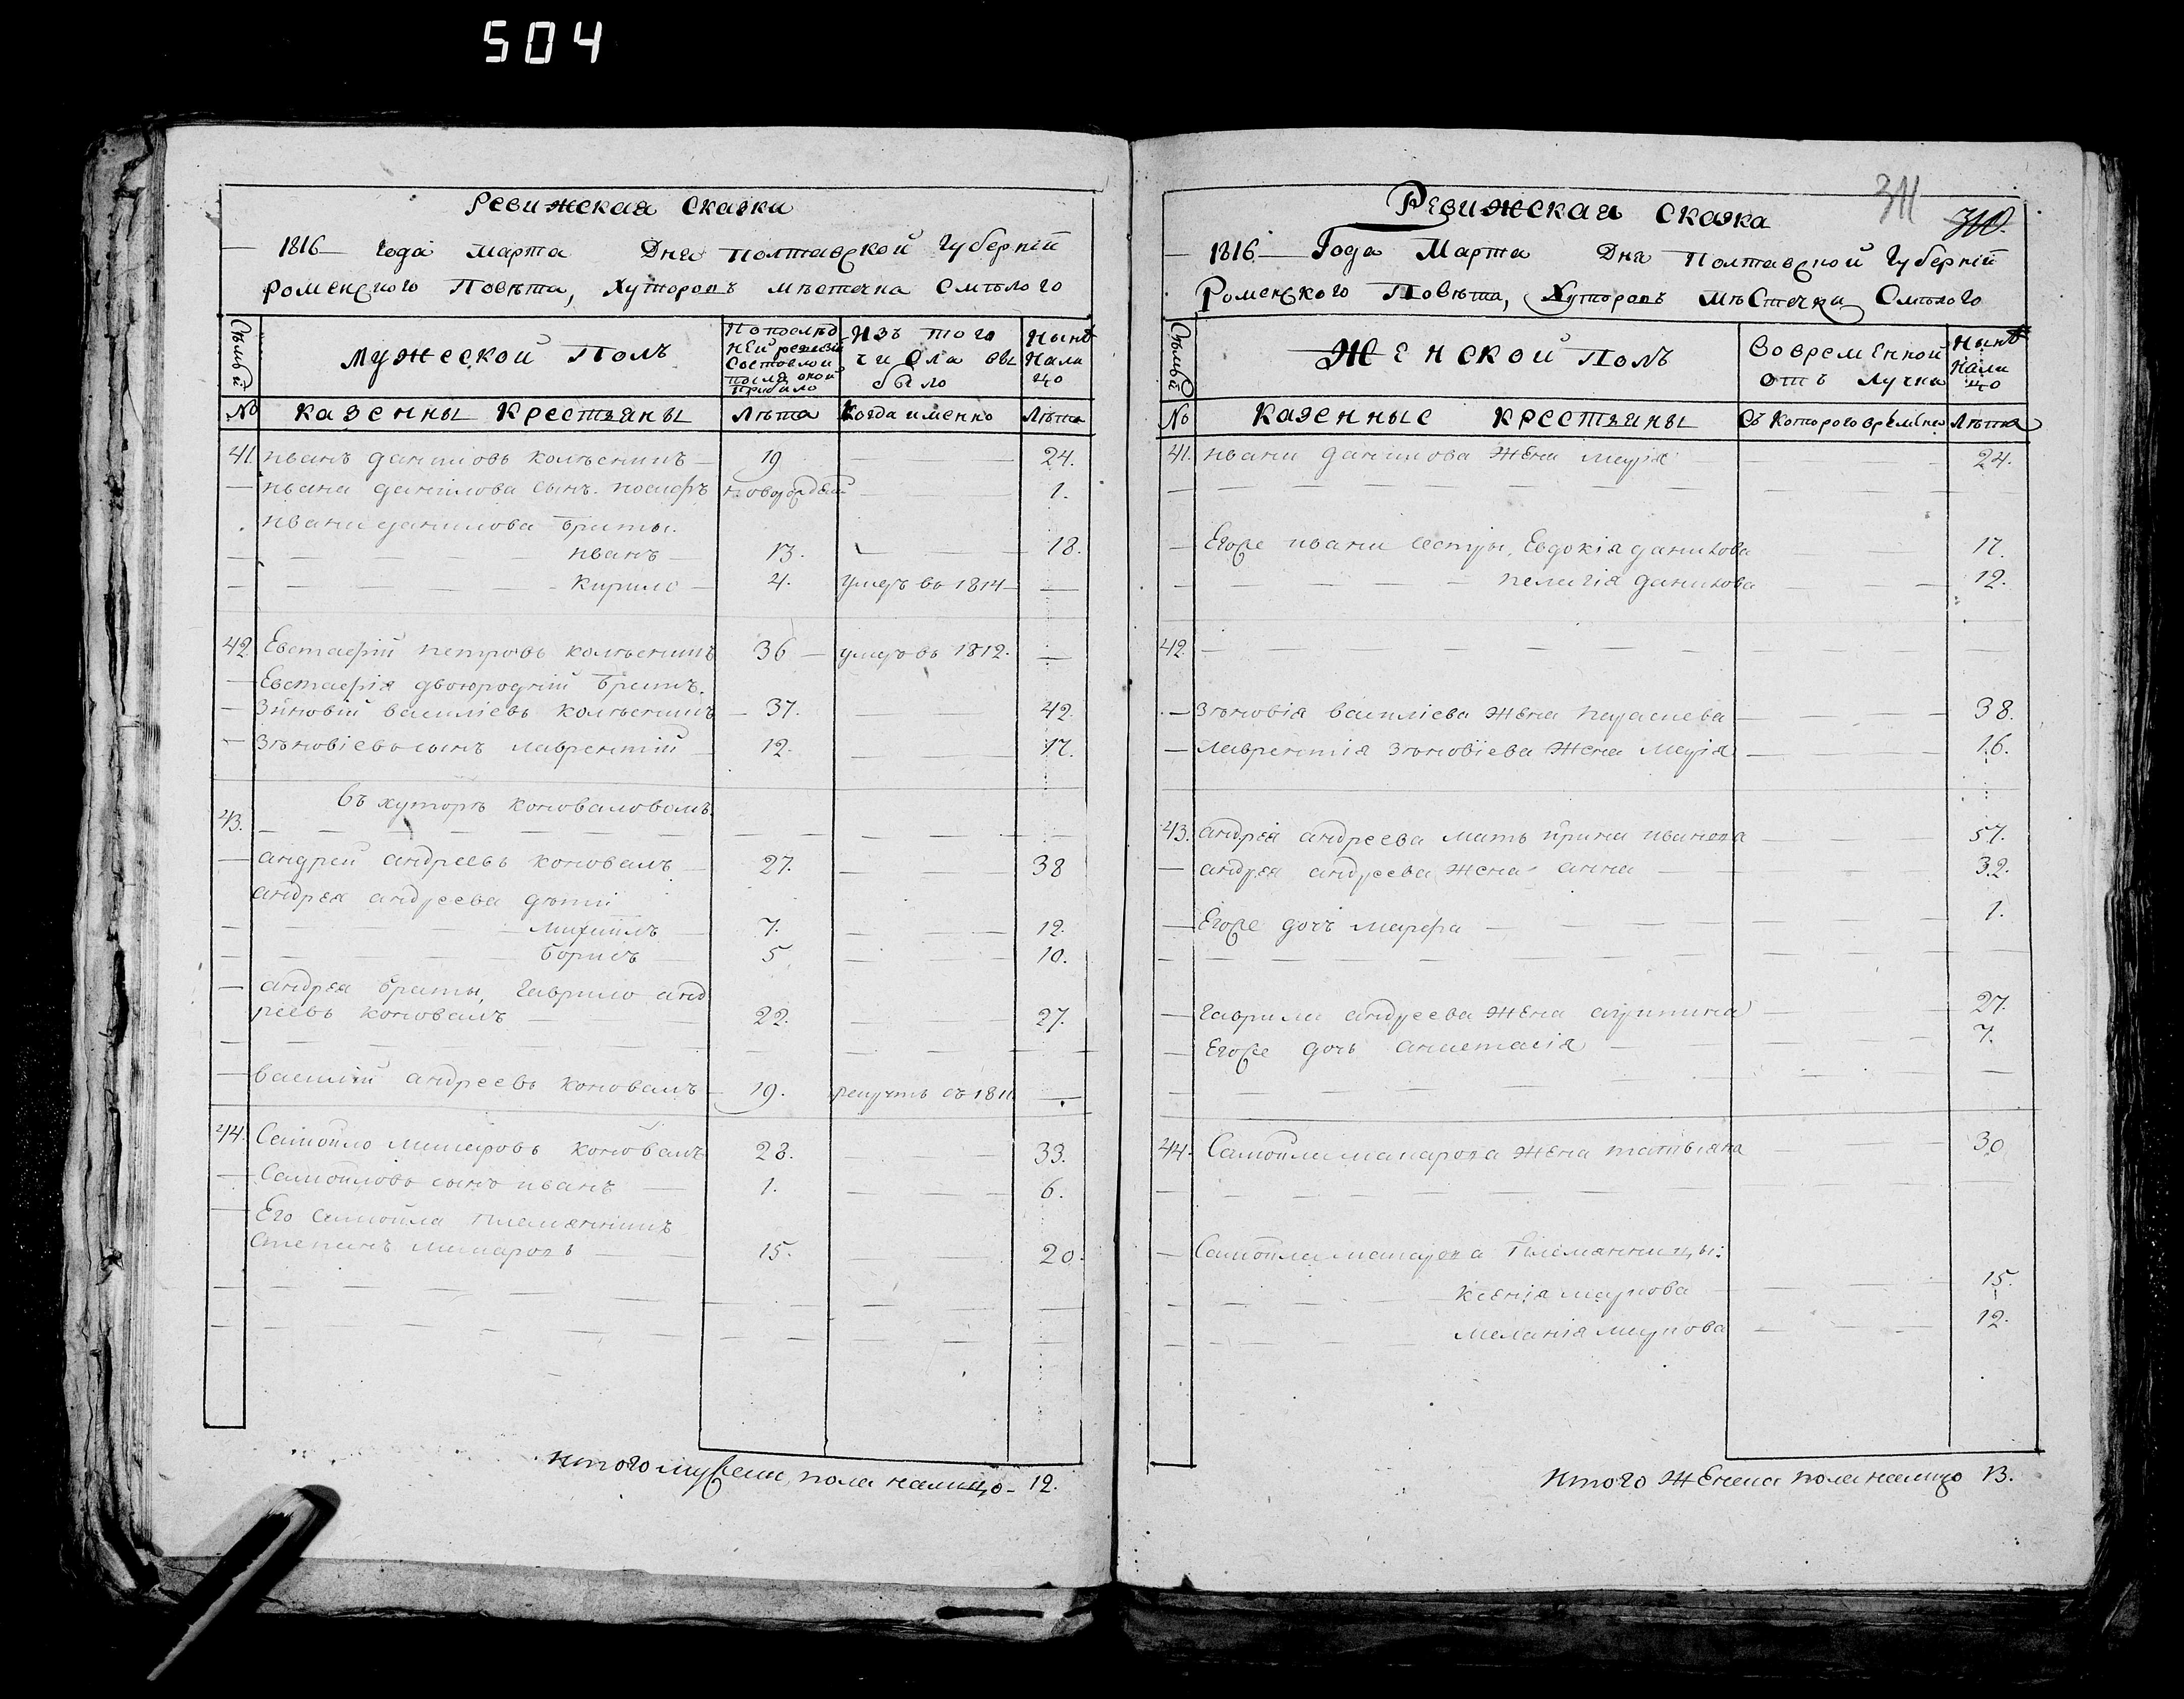 504
Ревижская Сказка
1816 Года Марта Дня Полтавской Губерніи
Роменского Повѣта, Хуторовъ мѣстечка Смѣлого
Сѣмьи
Мужеской Полъ
По послѣд
ней ревизіи
Состояло и
после оной
прибыло
Изъ того
числа вы
было
Нынѣ
Нали
цо
№ Казенны Крестьяны Лѣта Когда именно Лѣта
41. иванъ даниловъ колѣсникъ 19 24.
ивана данилова сынъ иосифъ новорожден 1.
ивана данилова браты.
иванъ 13. 18.
кирило 4. умеръ въ 1814
42. Евстафій петровъ колѣсникъ 36 умеръ въ 1812.
Евстафія двоюродній братъ.
Зѣновій василіевъ колѣсникъ 37. 42.
Зѣновіевъ сынъ лаврентій 12. 17.
въ хуторѣ коноваловомъ
43.
андрей андреевъ коновалъ 27. 38
андрея андреева дѣти
михаилъ 7. 12.
борисъ 5 10.
андрея браты, гаврило анд
реевъ коновалъ 22. 27.
василій андреевъ коновалъ 19. рекрутъ съ 1811
44. Самойло макаровъ коновалъ 28. 33.
Самойловъ сынъ иванъ 1. 6.
Его самойла племянникъ
степанъ макаровъ 15. 20.
Итого мужеск. пола налицо 12.
311
310.
Ревижская Сказка
1816 Года Марта Дня Полтавской Губерніи
Роменского Повѣта, Хуторовъ Мѣстечка Смѣлого
Сѣмьи
Женской Полъ
Во временной
отъ лучки
Нынѣ
Нали
цо
№ Казенные крестьяны Съ Которого времени Лѣта
41. ивана данилова жена марія 24.
Егоже ивана сестры, Евдокія данилова 17.
пелагія данилова 12.
42.
Зѣновія василіева жена параскева 38.
лаврентія зѣновіева жена марія 16.
43. андрея андреева мать ирина иванова 57.
андрея андреева жена анна 32.
Егоже дочь марфа 1.
гаврила андреева жена агрипина 27.
Егоже дочь анастасія 7.
44. Самойла макарова жена татьяна 30
Самойла макарова племянницы:
ксенія маркова 15.
меланія маркова 12.
Итого Женска пола налицо 13.